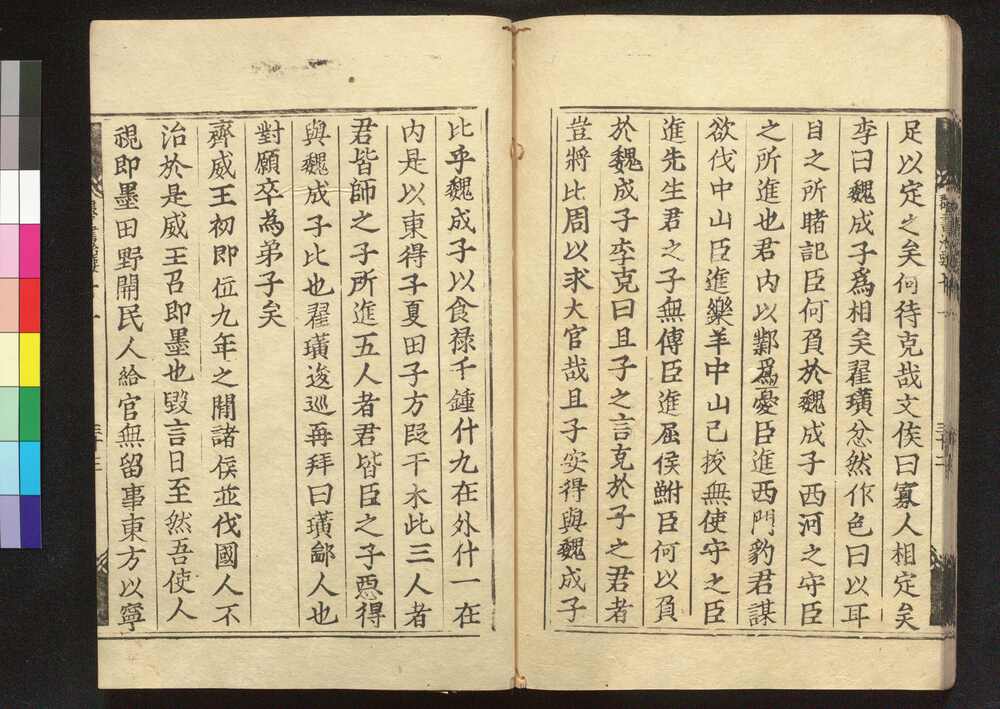 足以定之矣何待克哉文侯曰寡人相定矣
李曰魏成子爲相矣翟璜忿然作色曰以耳
目之所睹記臣何負於魏成子西河之守臣
之所進也君内以鄴爲憂臣進西門豹君謀
欲伐中山臣進樂羊中山已拔無使守之臣
進先生君之子無傅臣進屈侯鮒臣何以負
於魏成子李克曰且子之言克於子之君者
豈將比周以求大官哉且子安得與魏成子
比乎魏成子以食禄千鍾什九在外什一在
内是以東得子夏田子方段干木此三人者
君皆師之子所進五人者君皆臣之子惡得
與魏成子比也翟璜逡巡再拜曰璜鄙人也
對願卒為弟子矣
齊威王初即位九年之間諸侯並伐國人不
治於是威王召即墨也毀言日至然吾使人
視即墨田野開民人給官無留事東方以寧